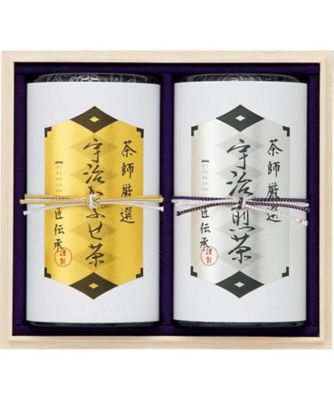 茶師厳選
宇治かぶせ茶
匠伝承
謹製
茶師厳選
宇治煎茶
匠伝承
謹製